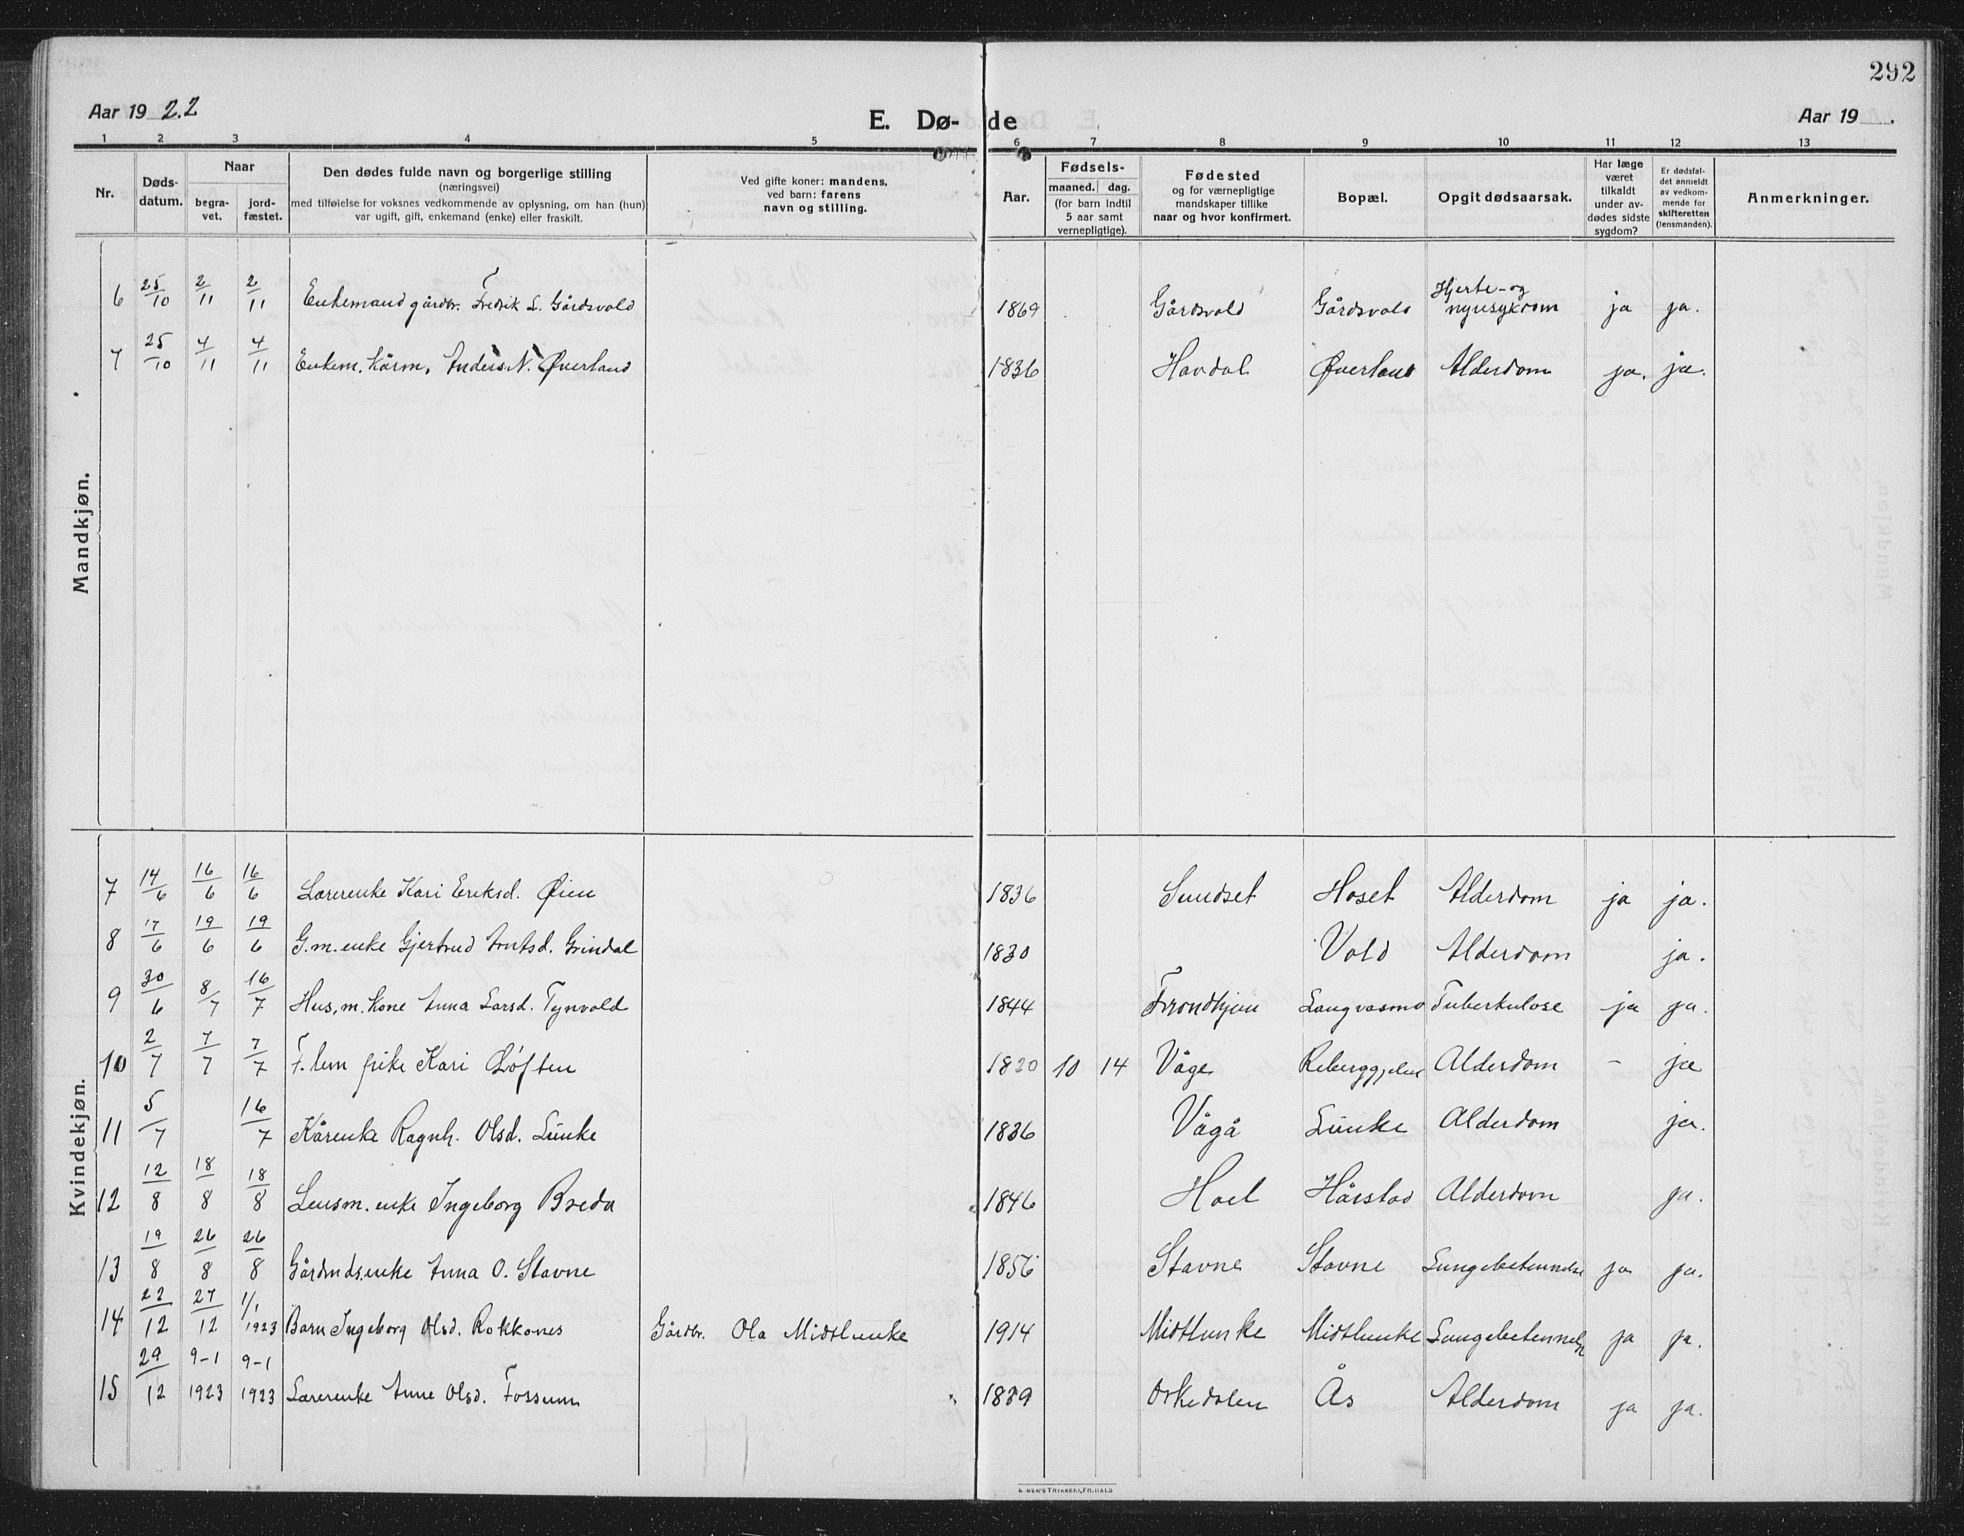 292
Aar 19 22
E. Dø- de
Aar 19 .
1 2 3 4 5 6 7 8 9 10 11 12 13
Nr.
Døds-
datum.
Naar
begra-
vet.
jord-
fæstet.
Den dødes fulde navn og borgerlige stilling
(næringsvei)
med tilføielse for voksnes vedkommende av oplysning, om han (hun)
var ugift, gift, enkemand (enke) eller fraskilt.
Ved gifte koner: mandens,
ved barn: farens
navn og stilling.
Aar.
Fødsels-
maaned. dag.
(for barn indtil
5 aar samt
vernepligtige).
Fødested
og for værnepligtige
mandskaper tillike
naar og hvor konfirmert.
Bopæl.
Opgit dødsaarsak.
Har læge
været
tilkaldt
under av-
dødes sidste
sygdom?
Er dødsfal-
det anmeldt
av vedkom-
mende for
skifteretten
(lensmanden).
Anmerkninger.
Mandkjøn.
6 25/10 2/11 2/11 Enkemand gårdbr. Fredrik L. Gårdsvold 1869 Gårdsvold Gårdsvold Hjerte- og nyresykdom ja ja.
7 25/10 4/11 4/11 Enkem. kårm. Anders N. Øverland 1836 Havdal Øverland Alderdom ja. ja.
Kvindekjøn.
7 14/6 16/6 16/6 Lærerenke Kari Eriksd. Øien 1836 Sundset Hoset Alderdom ja ja.
8 17/6 19/6 19/6 G.m.enke Gjertrud Arntsd. Grindal 1830 Vold Alderdom ja.
9 30/6 8/7 16/7 Hus.m.kone Anna Larsd. Tynvold 1844 Trondhjem Langvasmo Tuberkulose ja ja.
10 2/7 7/7 7/7 F. lem pike Kari Løften 1820 10 14 Våge Alderdom - ja
11 5/7 16/7 Kårenke Ragnh. Olsd. Lunke 1836 Vågå Lunke Alderdom ja.
12 12/8 18/8 18/8 Lensm.enke Ingeborg Breda 1846 Hoel Hårstad Alderdom ja.
13 19/8 26/8 26/8 Gårdmds.enke Anna O. Stavne 1856 Stavne Stavne Lungebetennelse ja ja.
14 22/12 27/12 1/1 1923 Barn Ingeborg Olsd. Rokkones Gårdbr. Ola Midtlunke 1914 Midtlunke Midtlunke Lungebetennelse ja ja.
15 29/12 9-1 1923 9-1 1923 Lærerenke Anne Olsd. Fossum 1839 Orkedalen Ås Alderdom ja ja.